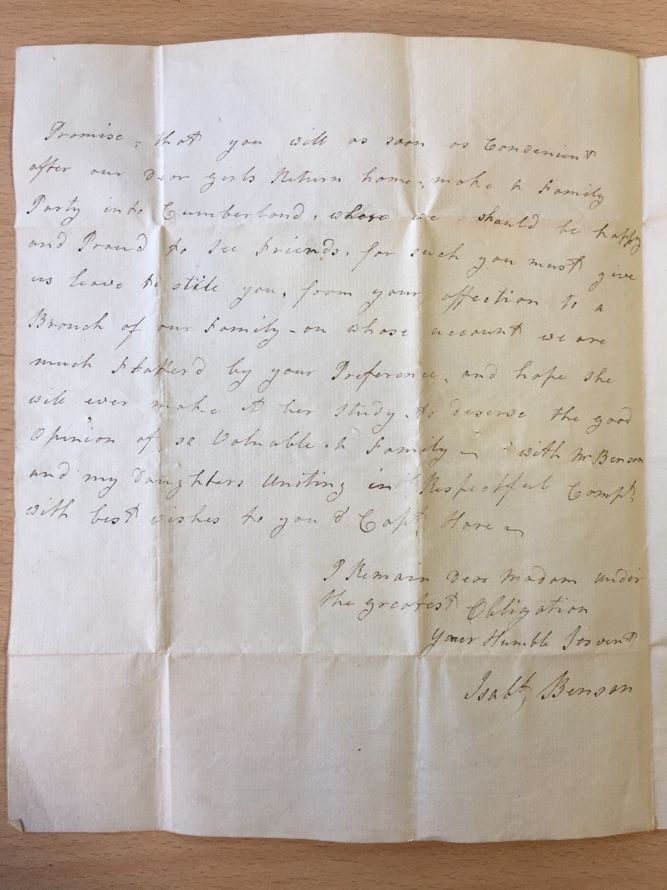 Promise, that you will as soon as Convenient
after our Dear girls Return home, make a Family
Party into Cumberland, where we should be happy
and Proud to see Friends, for such you must give
us leave to stile you, from your affection to a
Branch of our Family – on whose account we are
much Flatterd by your Preference, and hope she
will ever make it her study, to deserve the good
Opinion of, so Valuable, A Family – with Mr Benson
and my Daughters Uniting in Respectful Compts,
with best wishes to you & Capt, Hare –
I Remain Dear Madam under
the greatest Obligation
Your Humble Servent
Isabt, Benson